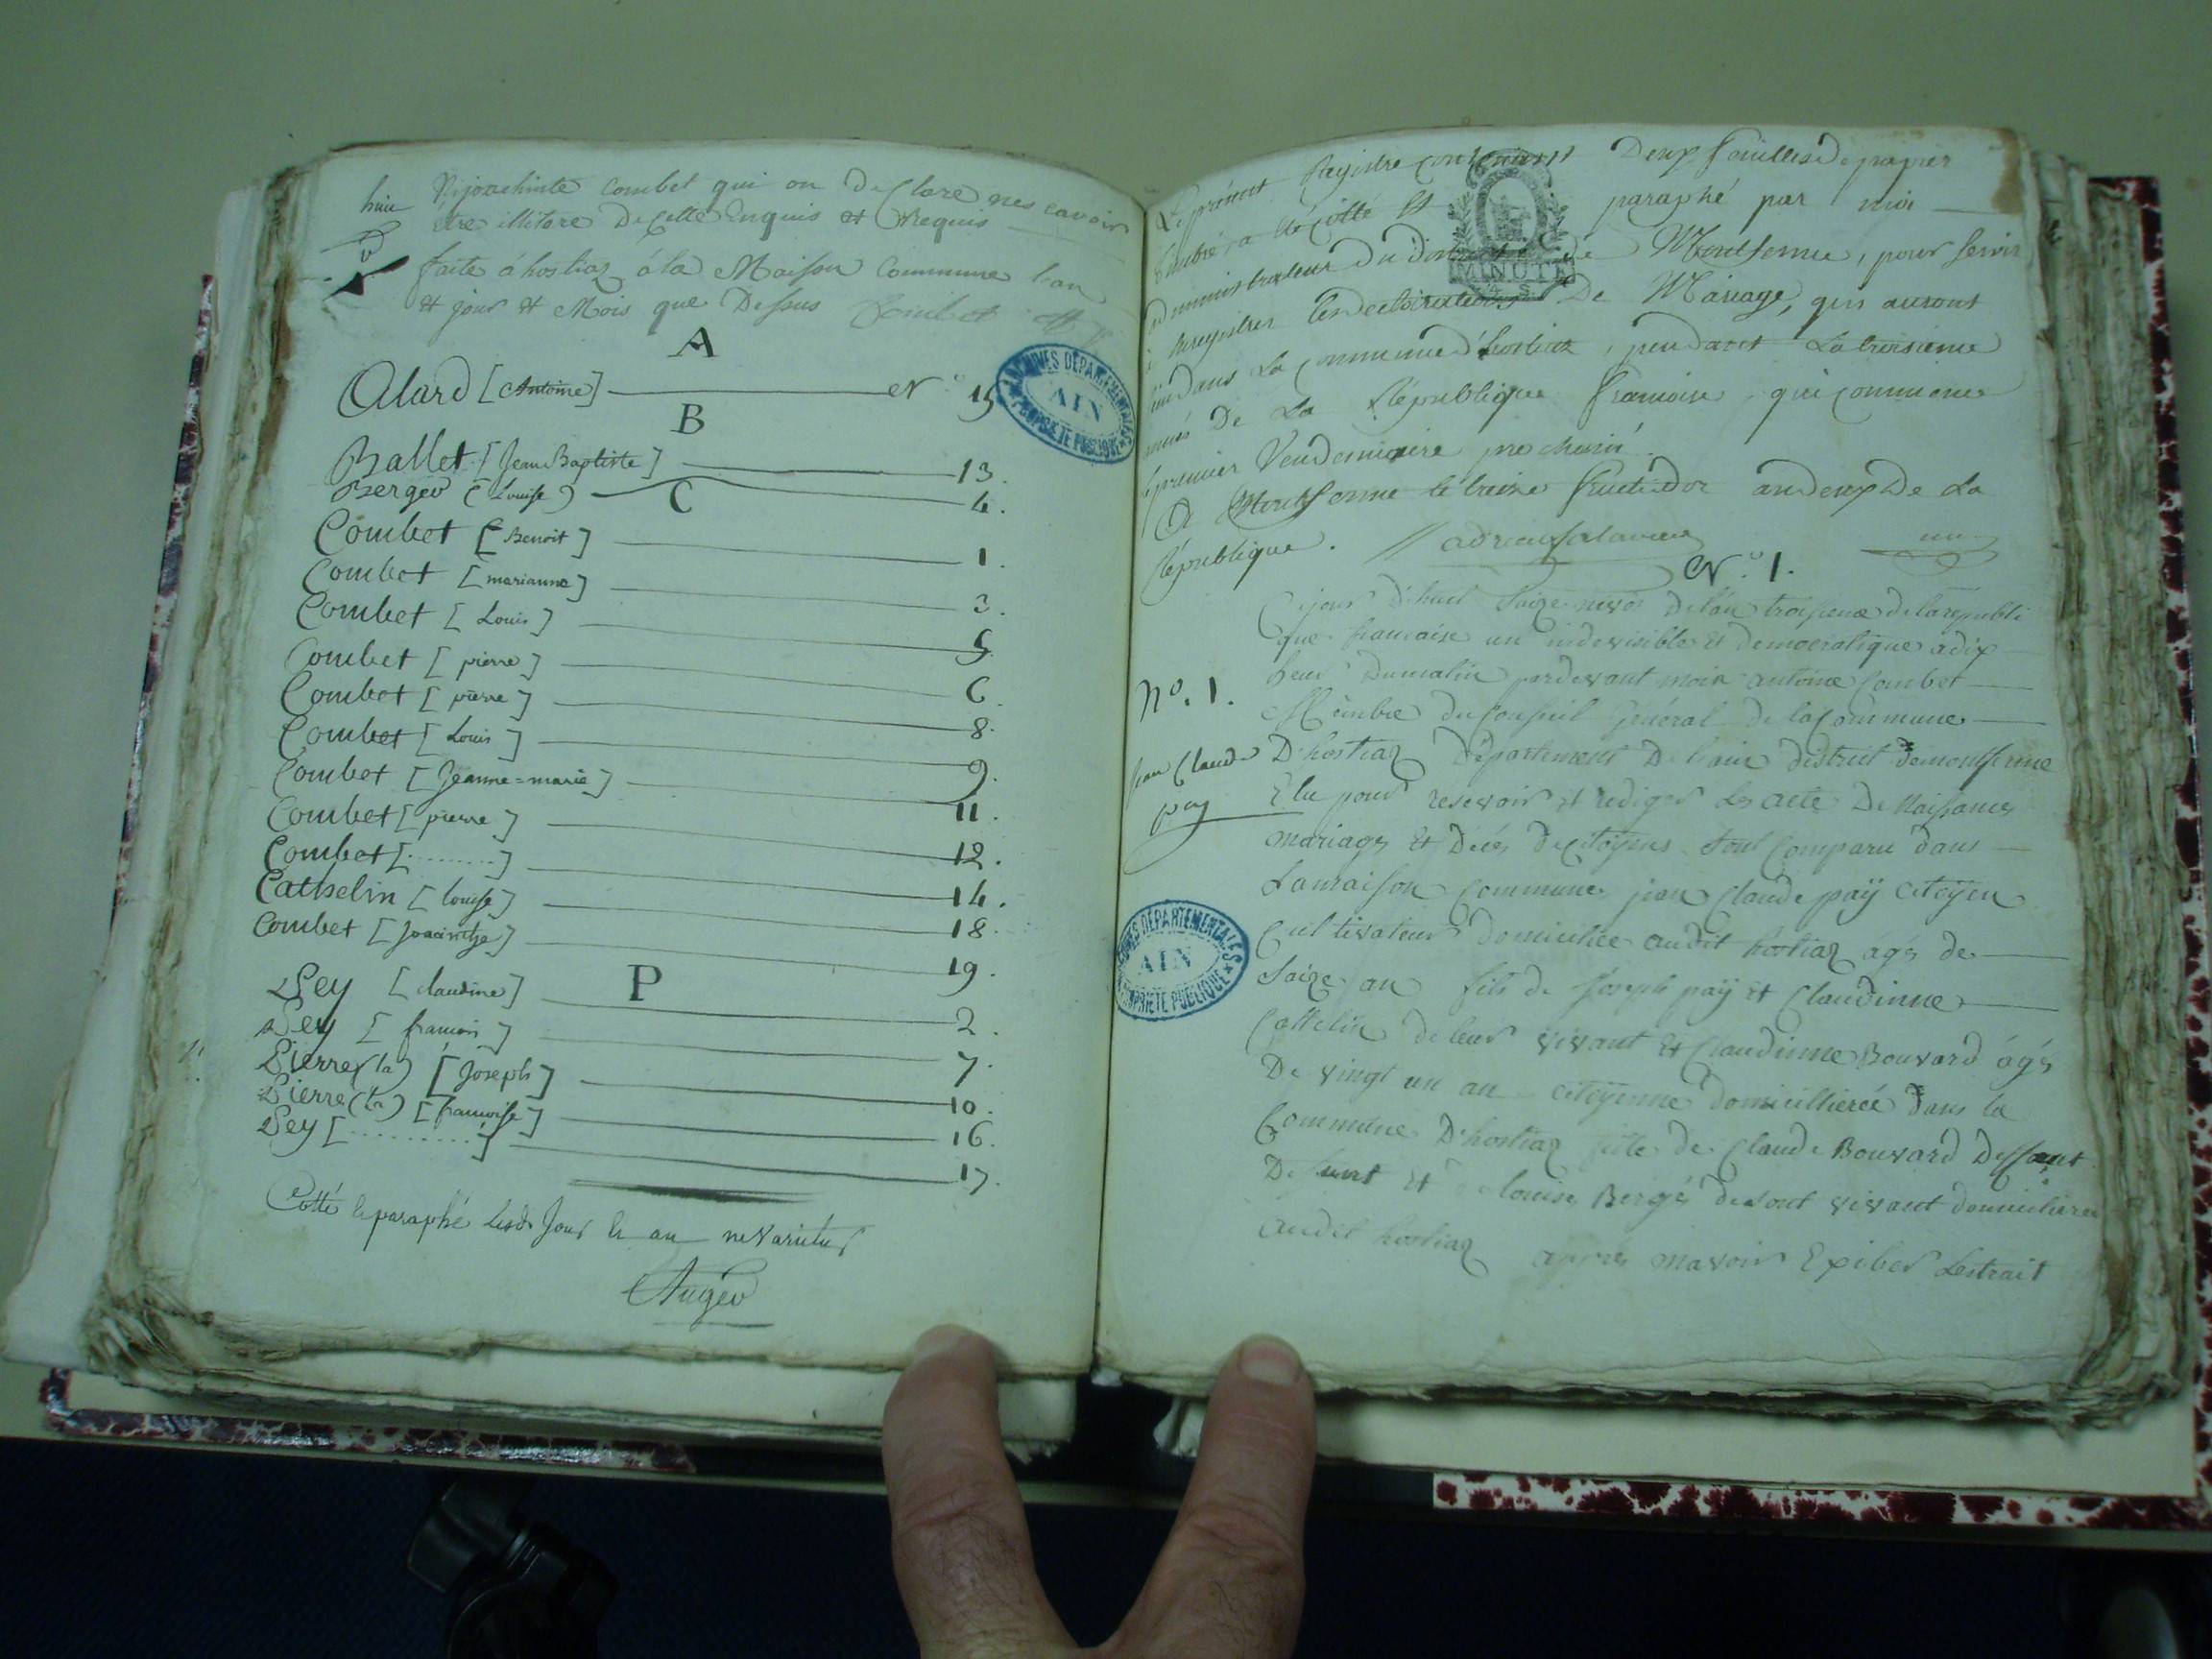 huie
joachinte Combet qui on Declare nes savoir
etre illitore De Celle Enquis et Requis
faite á hostiaz á la Maison Commune lan
et jour et Mois que Dessus Combet off
A
Alard [Antoine] N.° 15
B
Ballet [Jean Baptiste] 13.
Berger (Louise) 4.
C
Combet [Benoit] 1.
Combet [marianne] 3.
Combet [Louis] 5.
Combet [pierre] 6.
Combet [pierre] 8.
Combet [Louis] 9.
Combet [Jeanne=marie] 11.
Combet [pierre] 12.
Combet [..........] 14.
Cathelin [louise] 18.
Combet [Joacinthe] 19.
P
Pey [claudine] 2.
Pey [francois] 7.
Pierre (la) [Joseph] 10.
Pierre (la) [francoise] 16.
Pey [............] 17.
Cotté le paraphé Lesd. Jour le an nevarietur
Auger
ARCHIVES DÉPARTEMENTALES
AIN
PROPRIÉTÉ PUBLIQUE
Le présent Registre contenant Deux feuilles De papier
timbré a été cotté et paraphé par moi
administrateur du District de Montferme, pour servir
à Enregistrer les declarations De Mariage, qui auront
lieu dans La Commune d'hostiaz, pendant La troisieme
année De La République francoise, qui commence
le premier Vendemiaire prochain.
A Montferme le treize fructidor an deux De La
République.
MINUTE
N.° 1.
Cejour D'huit Saize nivos Delan troisieme de la republi
que francaise un indevisible et democratique a dix
heur Dumatin pardevant moix antoine Combet
Membre du Conseil Général de la Commune
N°. 1.
Jean Claude
pay
D'hostiaz Département De lain district Demontferme
Elu pour resevoir et rediger les acte De Naissances
mariages et Décés de citoyens sont Comparu dans
La maison Commune jean Claude paÿ citoÿen
Cultivateur domicilies audit hostiaz age de
Saize an fils de joseph paÿ et Claudinne
Cattelin de leur vivant et Claudinne Bouvard ágés
De vingt un an citoÿenne domicillieréé dans la
Commune D'hostiaz fille de Claude Bouvard Deffant
Defunt et louise Bergér desont vivant domiciliere
audit hostiaz apprés mavoir Exiber Lextrait
ARCHIVES DÉPARTEMENTALES
AIN
PROPRIÉTÉ PUBLIQUE